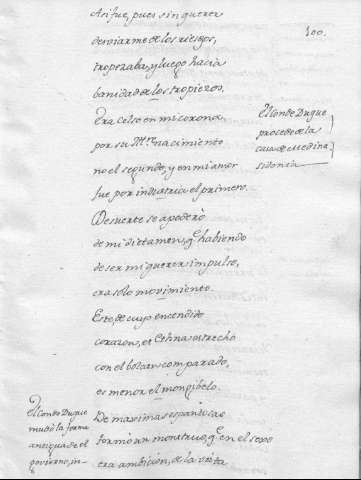 Asi fue, pues sin querer
100.
desviarme de los riesgos,
tropezaba, y luego hacia
banidad de los tropiezos.
Era Celso en mi corona,
por su Mr. nacimiento
no el segundo, y en mi amor
fue por industria el primero.
El Conde Duque
procede de la
casa de Medina
sidonia
Desuerte se apoderò
de mi dictamen, q̃ habiendo
de ser mi querer impulso,
era solo movimiento.
Este, de cuyo encendido
corazon, el Ethna estrecho
con el bolcan comparado,
es menor el mongibelo.
El Conde Duque
mudò la forma
antigua de el
govierno, in-
De maximas espantosas
formò un monstruo, q̃ en el sexo
era ambicion, de la vista